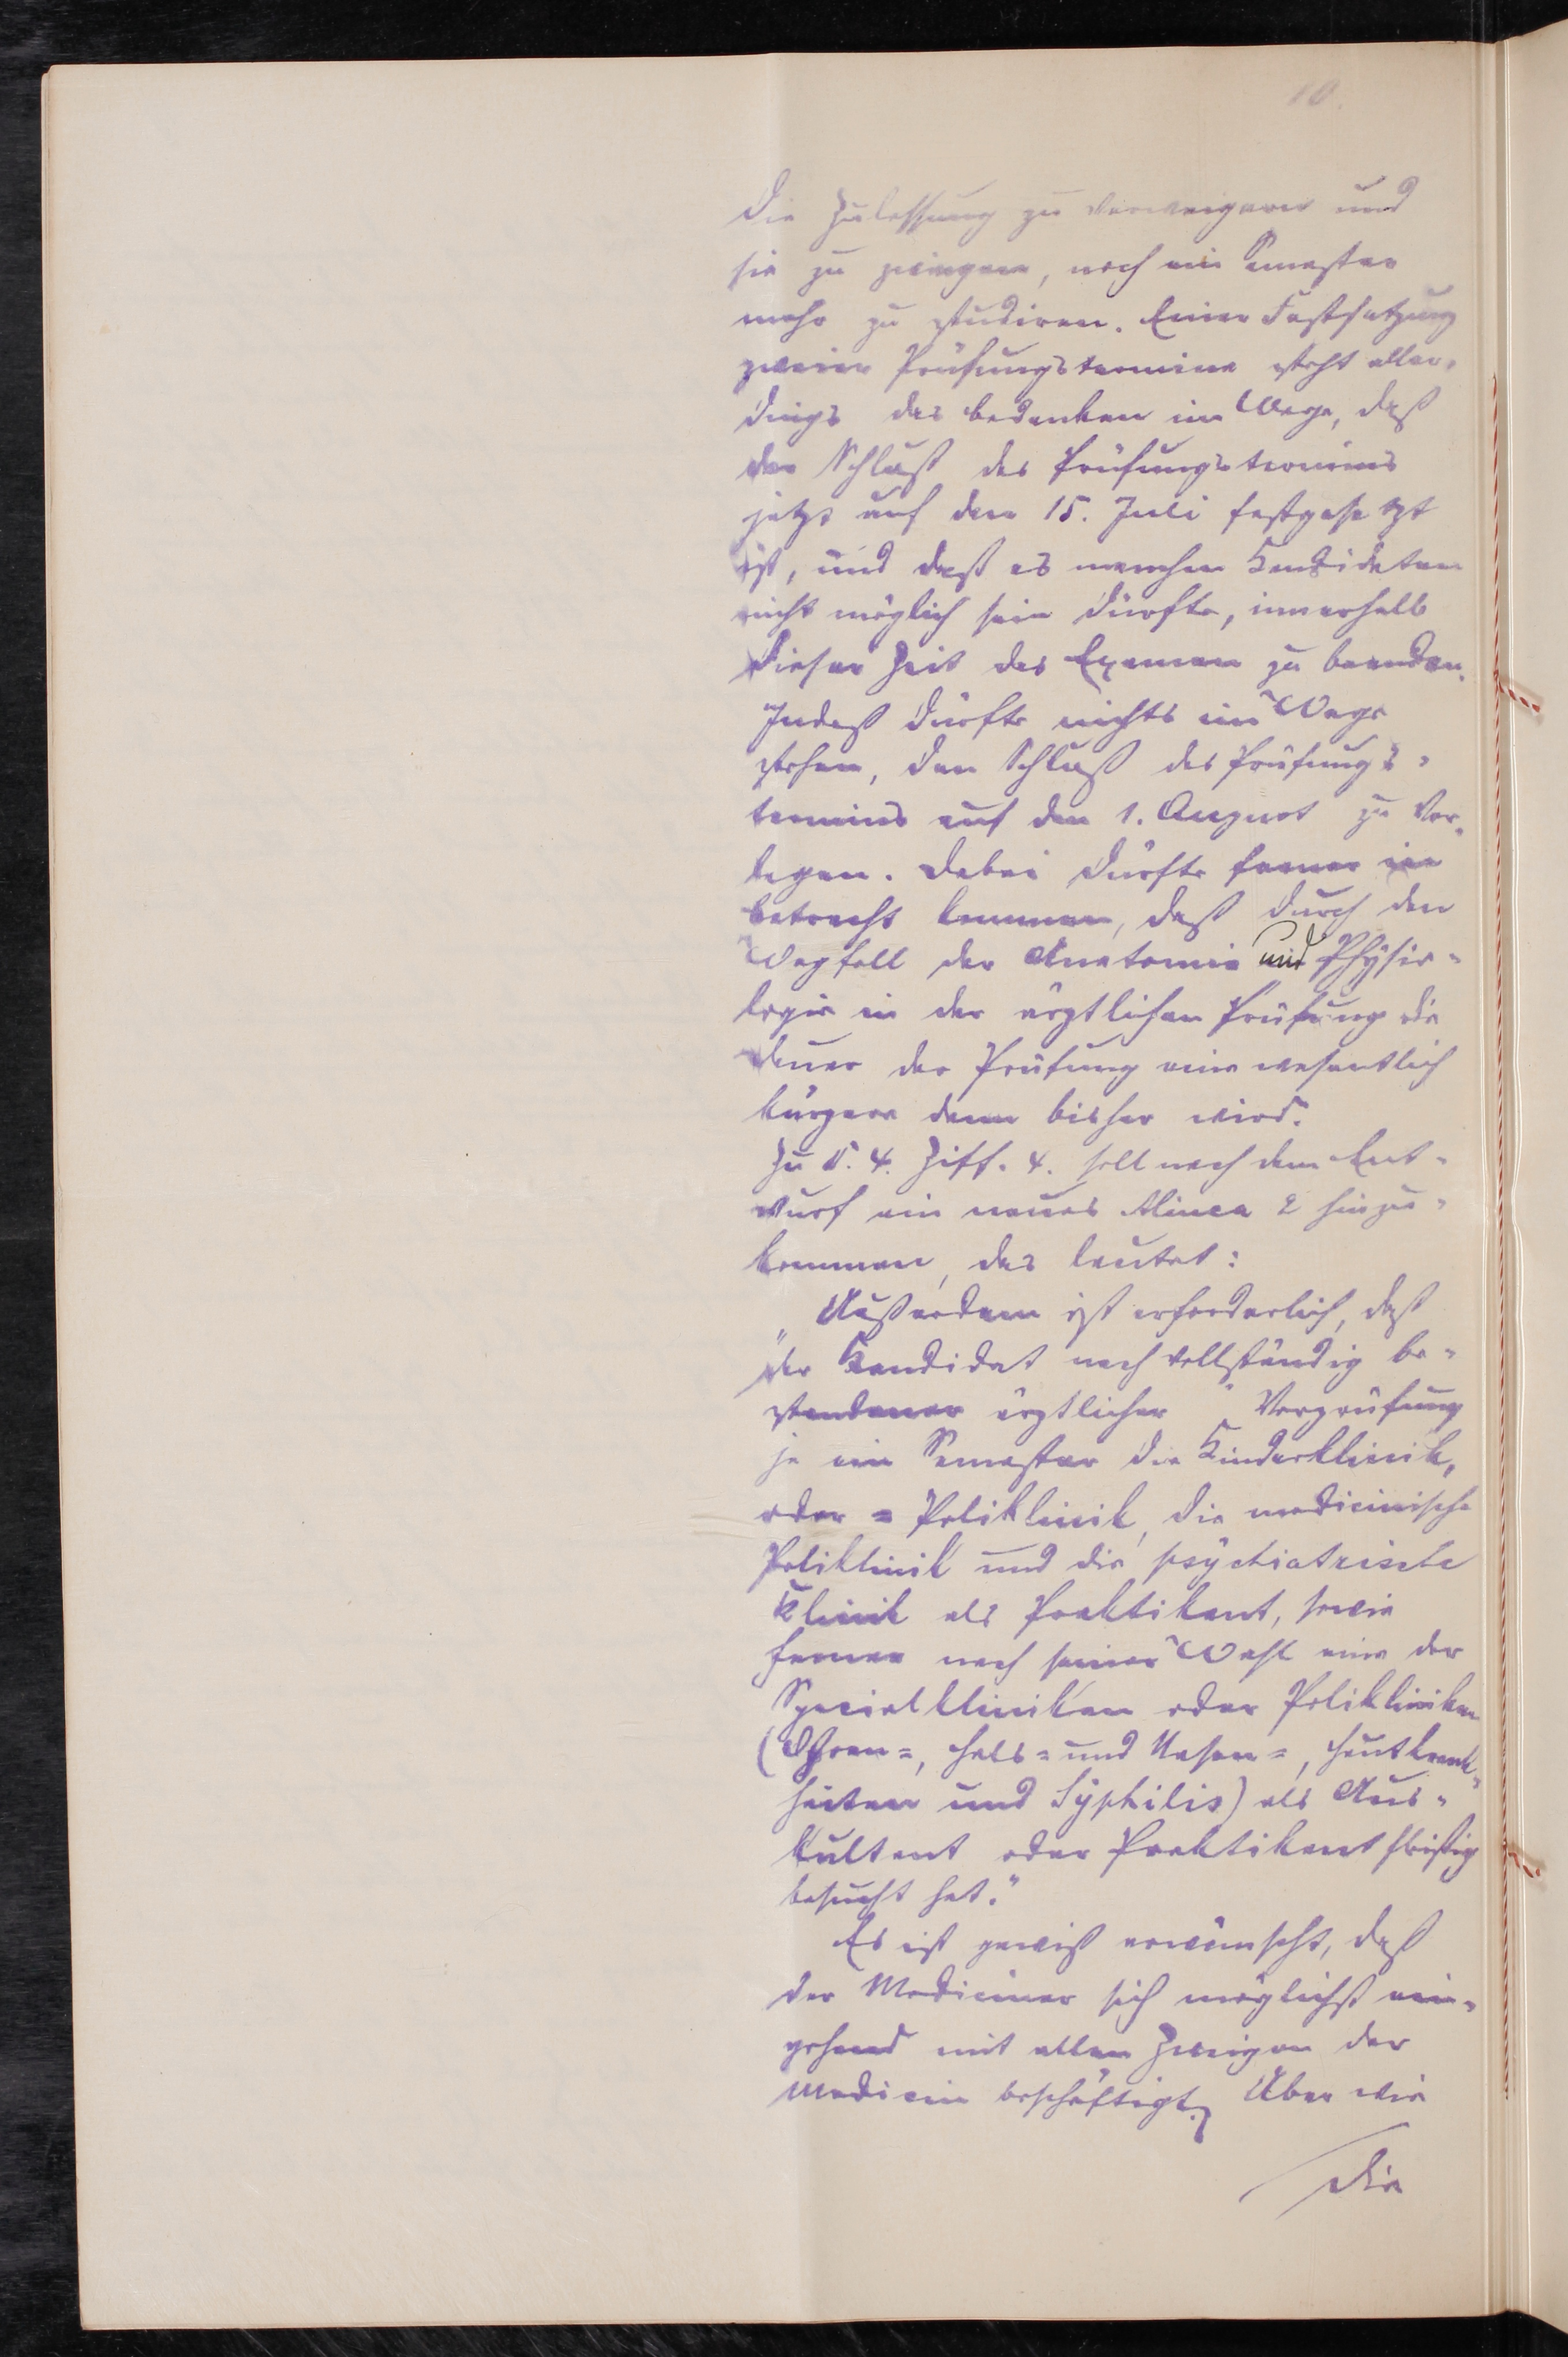 10.
die Zulassung zu verweigern und
sie zu zwingen, noch ein Semester
mehr zu studiren. Einer Festsetzung
zweier Prüfungstermine steht aller-
dings das Bedenken im Wege, daß
der Schluß des Prüfungstermins
jetzt auf den 15. Juli festgesetzt
ist, und daß es manchen Kandidaten
nicht möglich sein dürfte, innerhalb
dieser Zeit das Examen zu beenden.
Indeß dürfte nichts im Wege
stehen, den Schluß des Prüfungs-
termins auf den 1. August zu ver-
legen. Dabei dürfte ferner in
Betracht kommen, daß durch den
Wegfall der Anatomie und Physio-
logie in der ärztlichen Prüfung die
Dauer der Prüfung eine wesentlich
kürzere denn bisher wird.
Zu §. 4. Ziff. 4. soll nach dem Ent-
wurf ein neues Alinea 2 hinzu-
kommen, das lautet:
„Außerdem ist erforderlich, daß
der Kandidat nach vollständig be-
standener ärztlicher Vorprüfung
je ein Semester die Kinderklinik,
oder = Poliklinik, die medicinische
Poliklinik und die psychiatrische
Klinik als Praktikant, sowie
ferner nach seiner Wahl eine der
Specialkliniken oder Polikliniken
(Ohren=, Hals= und Nasen=, Hautkrank-
heiten und Syphilis) als Aus-
kultant oder Praktikant fleißig
besucht hat.“
Es ist gewiß erwünscht, daß
der Mediciner sich möglichst ein-
gehend mit allen Zweigen der
Medicin beschäftigt. Aber wie
die